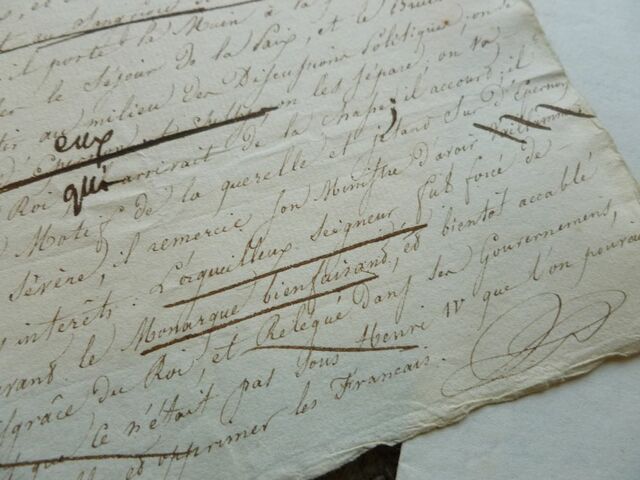 il porte la Main à la
le Séjour de la Paix, et le
au milieu des Discussions Politiques; on se
on les sépare; on va
eux
Roi qui arrivait de la chasse; il accourd; il
Motif de la querelle et jettand sur d'Epernon
Sévère, il remercie son Ministre d'avoir
intérêts. L'orguilleux Seigneur fut forcé de
le Monarque bienfaisand, ed bientot accablé
grâce du Roi, et Relegué dans ses Gouvernemens,
que ce n'était pas sous Henri IV que l'on pouvai
ed opprimer les Francais.